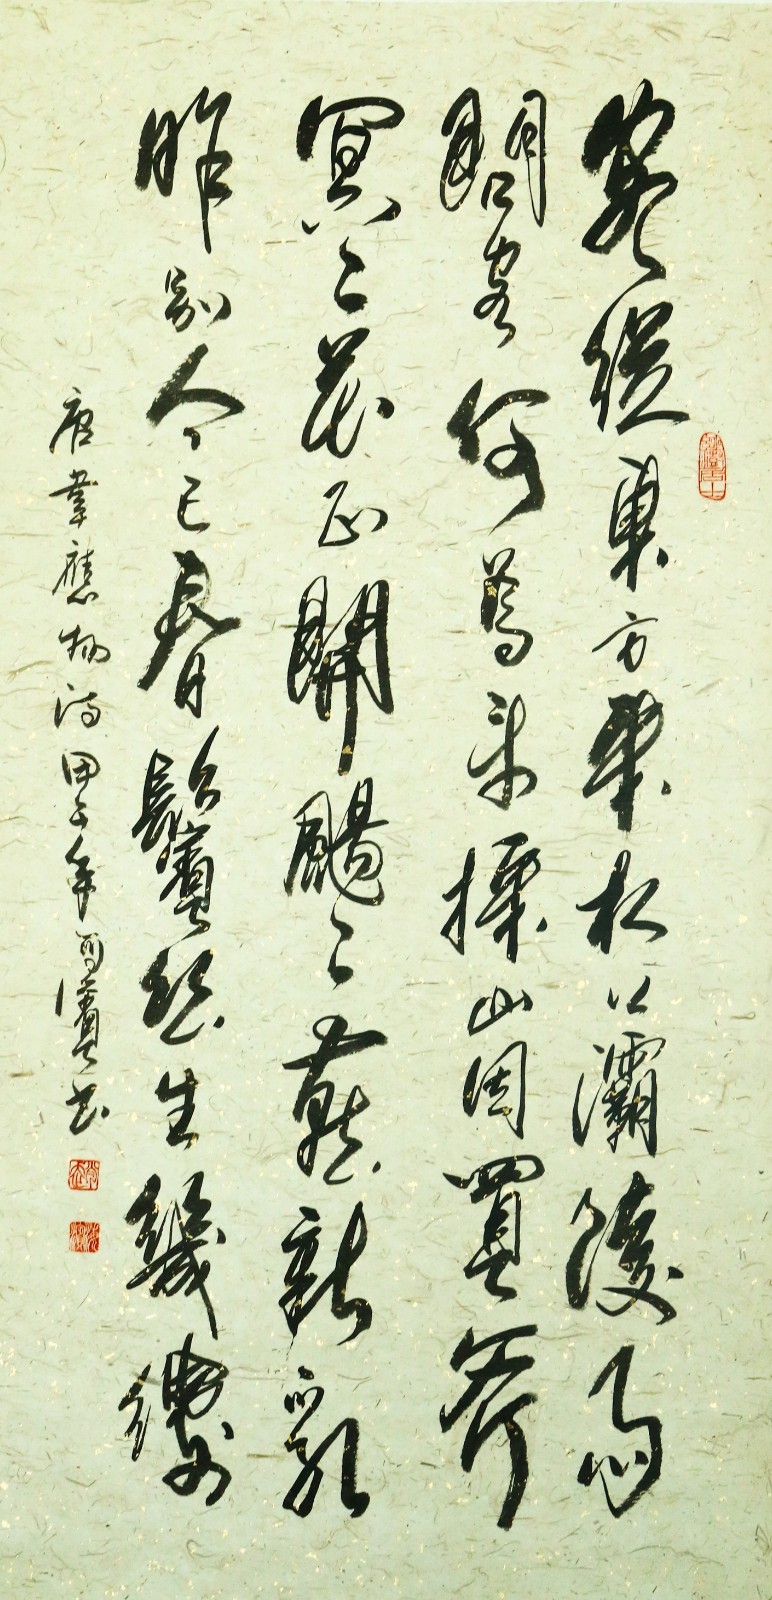 客從東方來上灞陵雨
問客何為來採山因買斧
冥々花正開颺々燕新乳
昨別今已春鬢絲生幾縷
唐韋應物詩甲年書